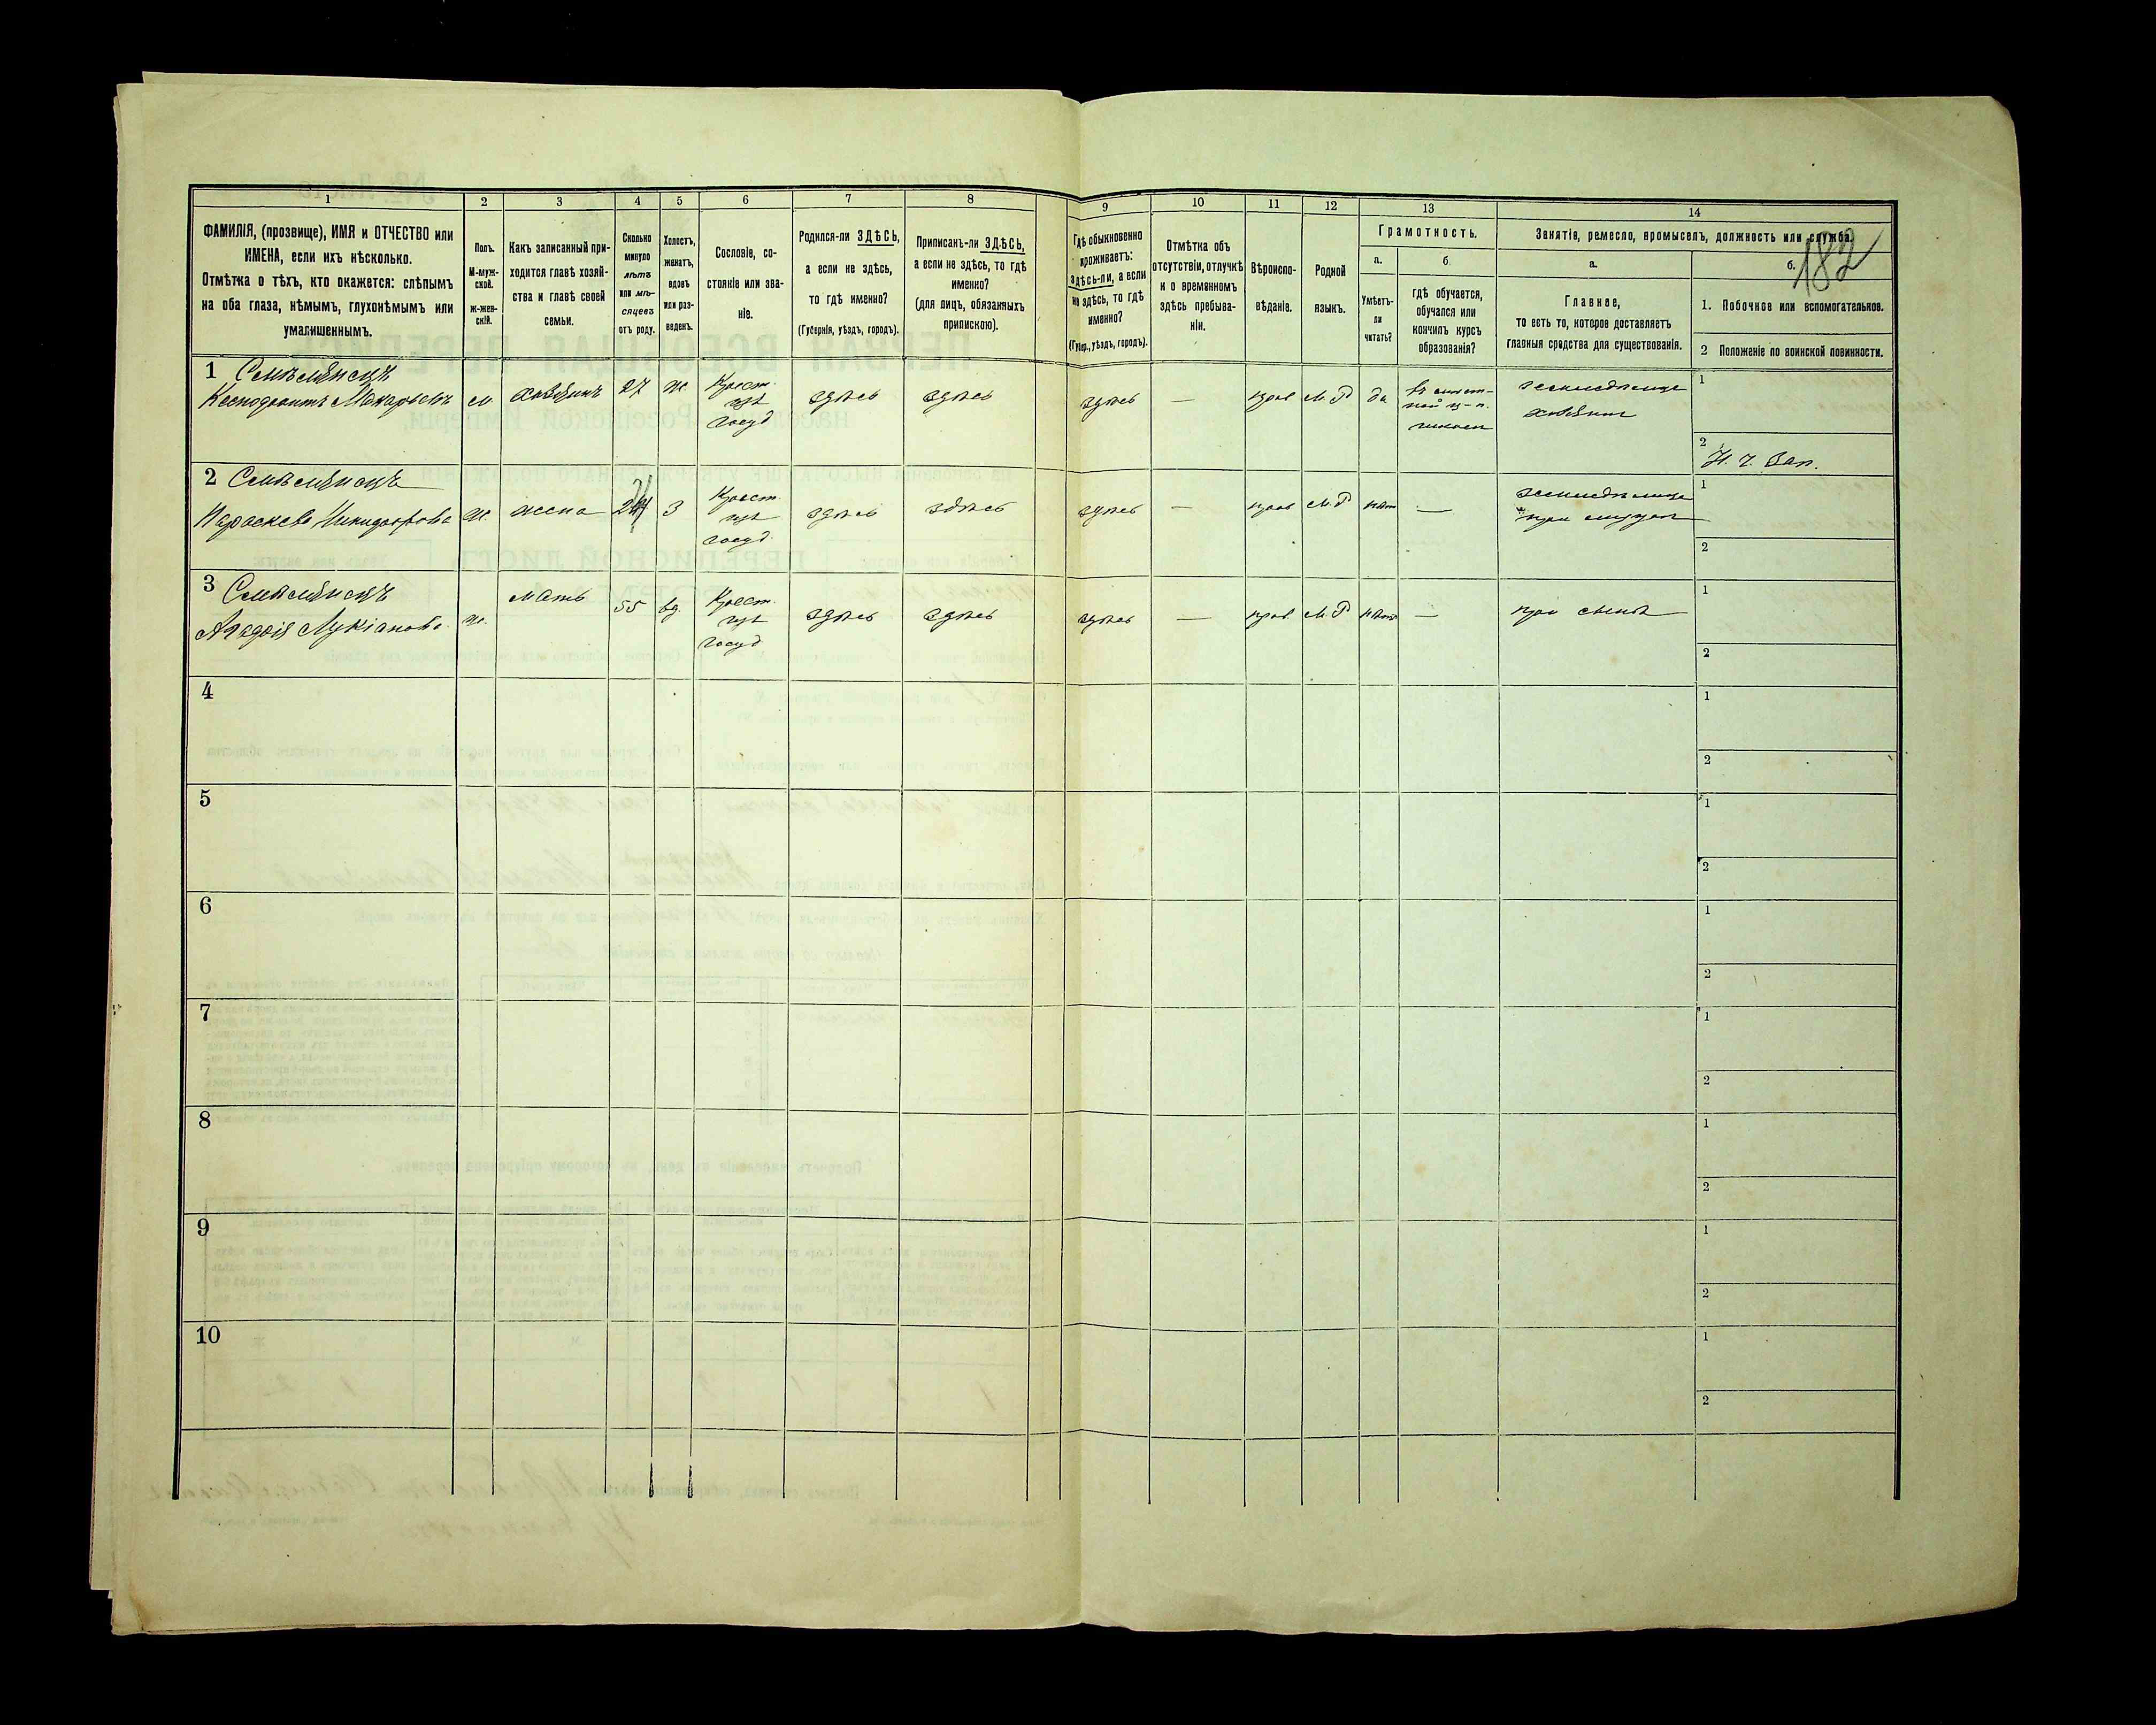 182
1 2 3 4 5 6 7 8 9 10 11 12 13 14
ФАМИЛІЯ, (прозвище), ИМЯ и ОТЧЕСТВО или
ИМЕНА, если ихъ нѣсколько.
Отмѣтка о тѣхъ, кто окажется: слѣпымъ
на оба глаза, нѣмымъ, глухонѣмымъ или
умалишеннымъ.
Полъ.
М-муж-
ской.
ж-жен-
скій.
Какъ записанный при-
ходится главѣ хозяй-
ства и главѣ своей
семьи.
Сколько
минуло
лѣтъ
или мѣ-
сяцевъ
отъ роду.
Холостъ,
женатъ,
вдовъ
или раз-
веденъ.
Сословіе, со-
стояніе или зва-
ніе.
Родился-ли ЗДѢСЬ,
а если не здѣсь,
то гдѣ именно?
(Губернія, уѣздъ, городъ).
Приписанъ-ли ЗДѢСЬ,
а если не здѣсь, то гдѣ
именно?
(для лицъ, обязанныхъ
припискою).
Гдѣ обыкновенно
проживаетъ:
здѣсь-ли, а если
не здѣсь, то гдѣ
именно?
(Губер., уѣздъ, городъ).
Отмѣтка объ
отсутствіи, отлучкѣ
и о временномъ
здѣсь пребыва-
ніи.
Вѣроиспо-
вѣданіе.
Родной
языкъ.
Грамотность.
а.
Умѣетъ-
ли
читать?
б
гдѣ обучается,
обучался или
кончилъ курсъ
образованія?
Занятіе, ремесло, промыселъ, должность или служба.
а.
Главное,
то есть то, которое доставляетъ
главныя средства для существованія.
б.
1. Побочное или вспомогательное.
2 Положеніе по воинской повинности.
1
Макарьевъ м. хозяинъ 27 ж. Крест.
изъ
госуд
здѣсь здѣсь здѣсь — прав М.Р да
школѣ
хозяинъ
1
2
Н. ч. Зап.
2
Параскева Никифорова ж. жена 24 З Крест.
изъ
госуд.
здѣсь здѣсь здѣсь — прав М.Р нѣт —
при мужѣ
1
2
3
Лукіанова ж. мать 55 вд. Крест.
изъ
госуд
здѣсь здѣсь здѣсь — прав. М.Р нѣт — при сынѣ
1
2
4
1
2
5
1
2
6
1
2
7
1
2
8
1
2
9
1
2
10
1
2